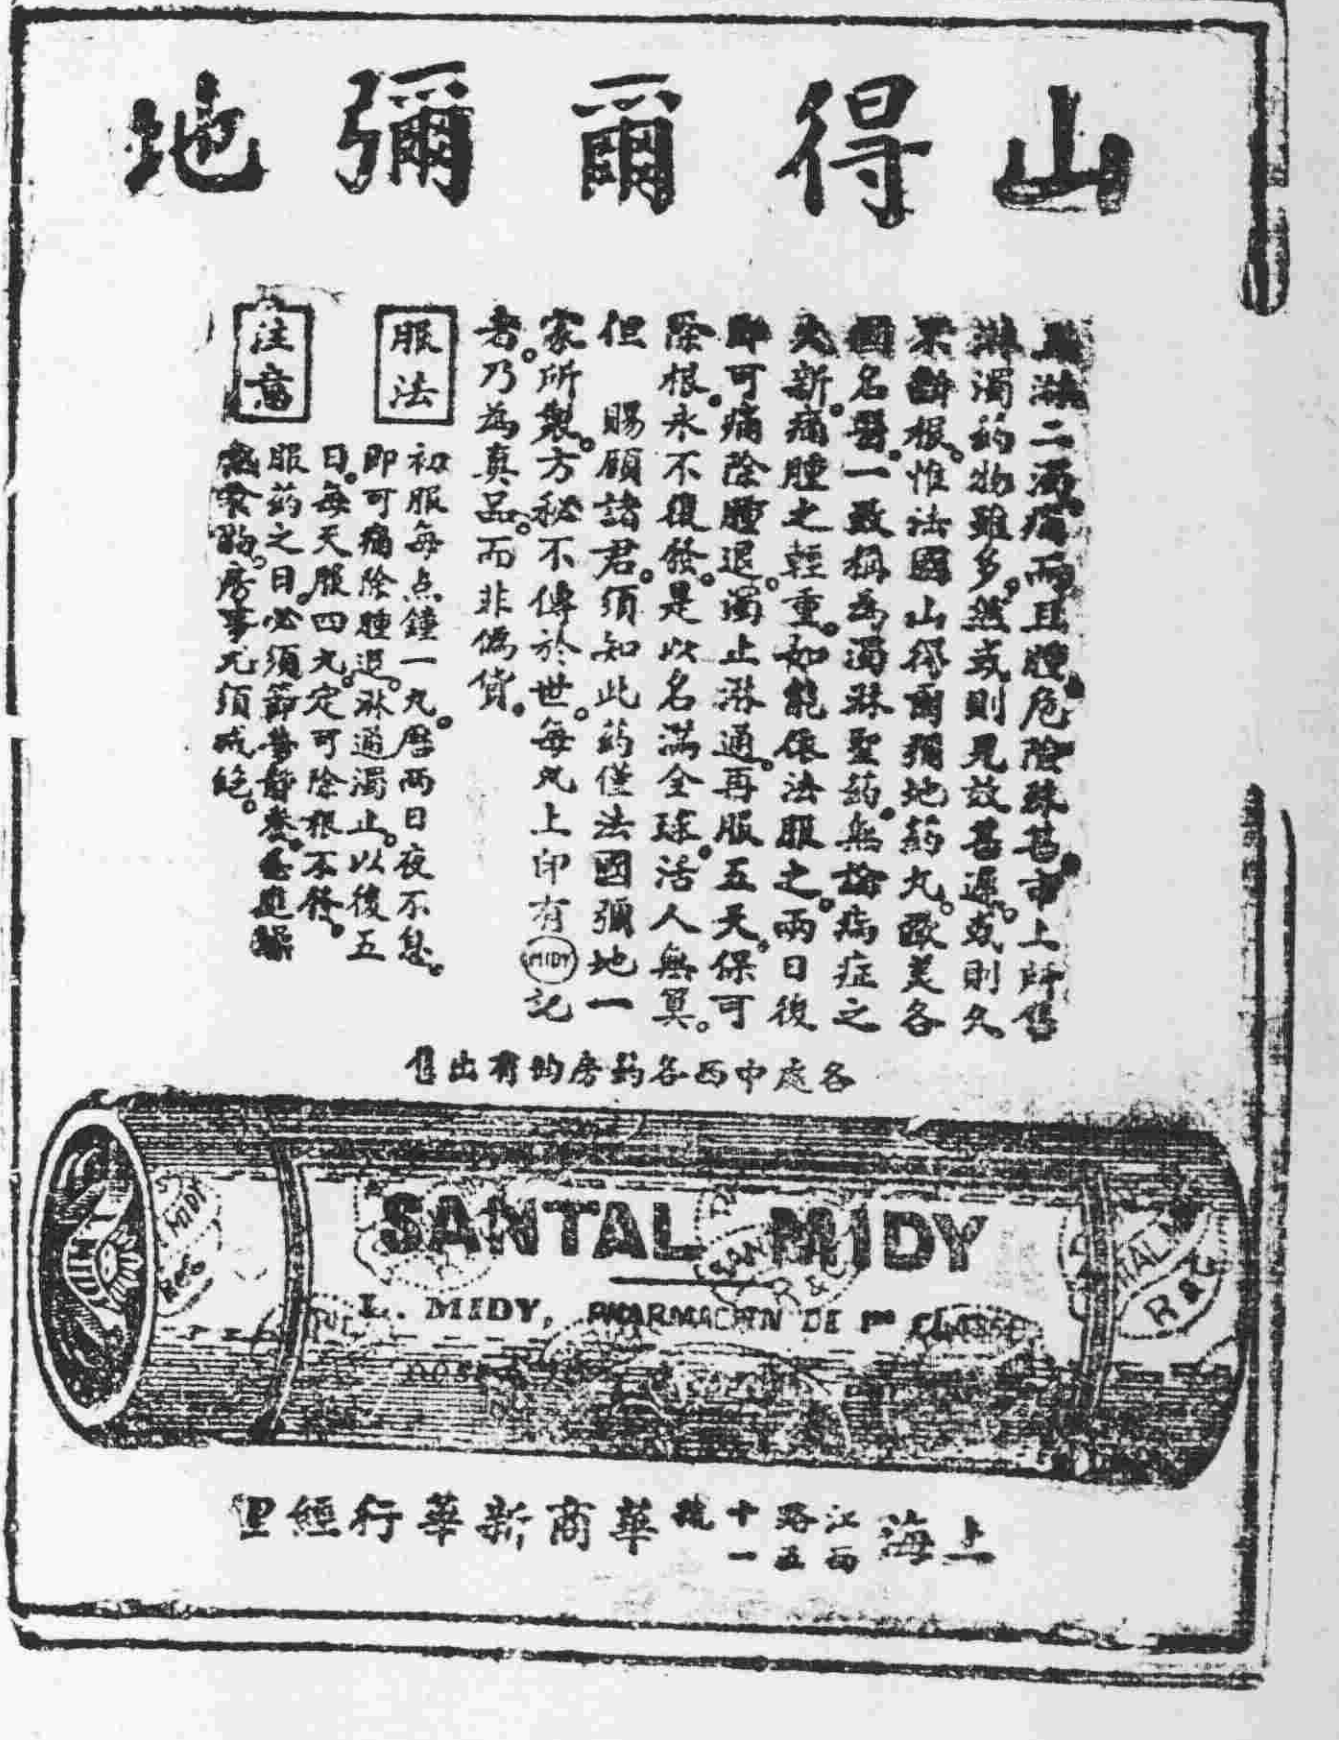 山得爾彌地
淋二濁痛而且腫危險殊甚市上所售
淋濁药物雖多。然或則見效甚遲。或則久
不斷根。惟法國山得爾彌地药丸。歐美各
國名醫。一致稱為濁淋聖药。無論病症之
久新。痛腫之輕重。如能依法服之。兩日後
即可痛除腫退。濁止淋通。再服五天。保可
除根。永不復發。是以名滿全球。活人無算。
但 賜顧諸君。須知此药僅法國彌地一
家所製。方秘不傳於世。每丸上印有MIDY記
者。乃為真品。而非僞貨。
服法
初服每点鐘一丸。曆兩日夜不息。
即可痛除腫退。淋通濁止。以後五
日。每天服四丸。定可除根不發。
注意
服药之日。必須節勞靜養。
房事尤須戒絕。
各處中西各药房均有出售
MIDY
SANTAL MIDY
SAN
R & C
L. MIDY, PHARMACIEN DE 1re CLASSE
上海江西路五十一號華商新華行經理